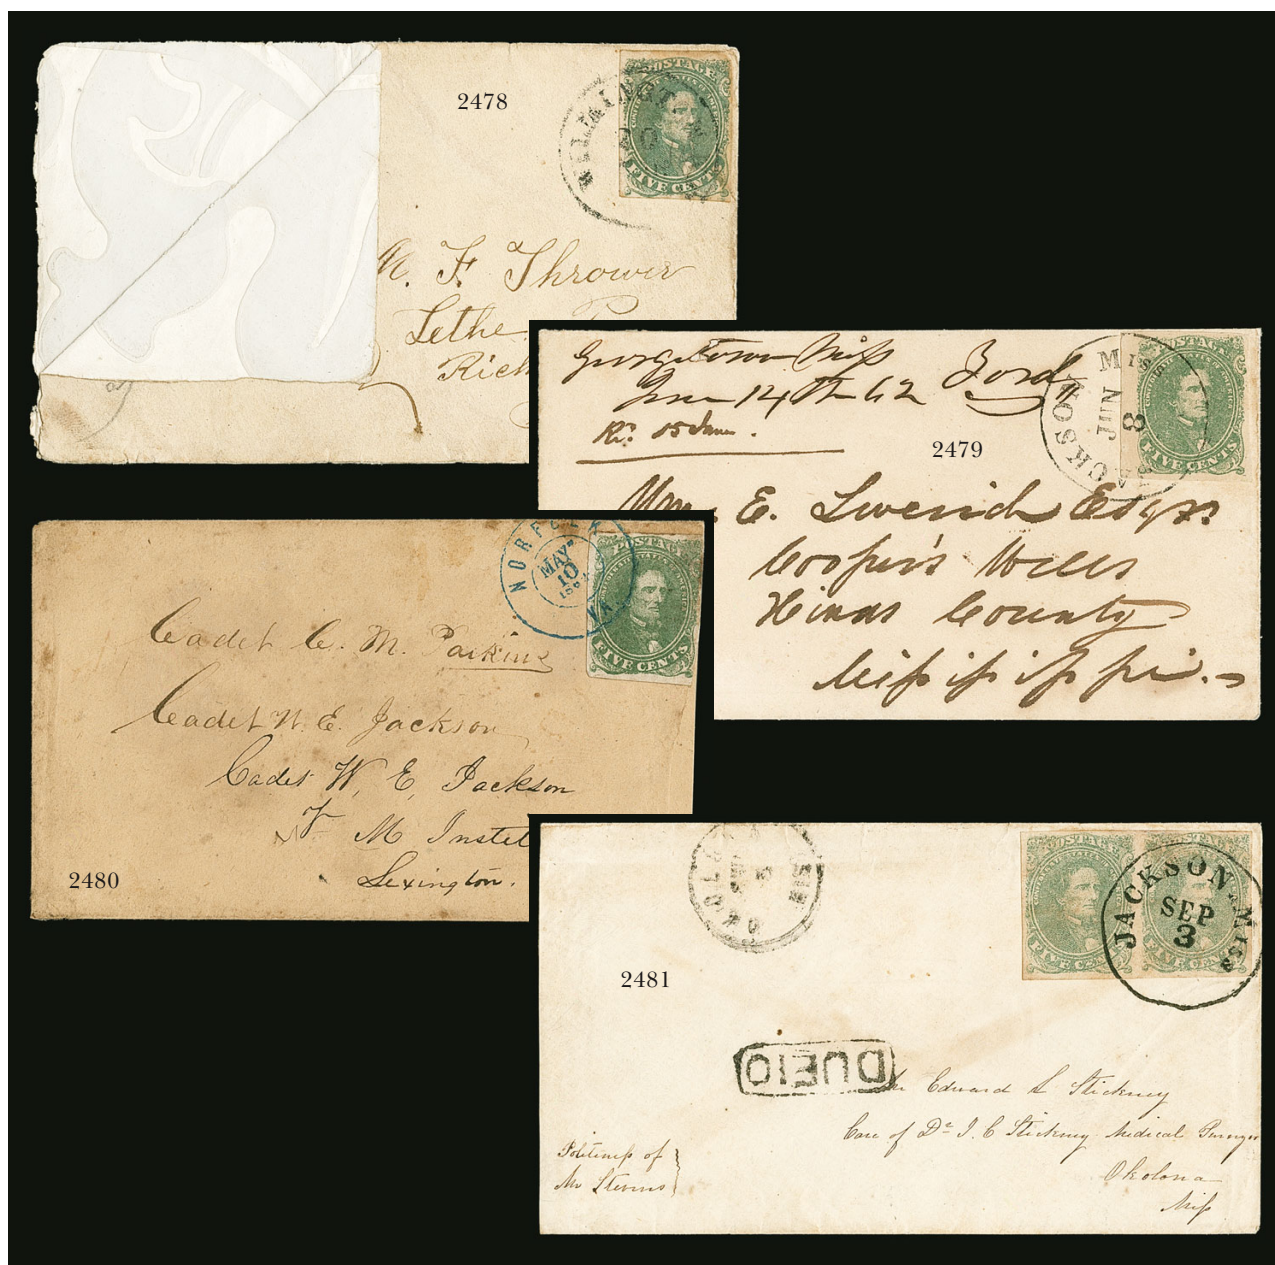 2478
POSTAGE
FIVE CENTS
F. Thrower
Lethe
Rich
2479
Georgetown Miss
June 14th 62
JACKSON MISS
JUN
8
POSTAGE
FIVE CENTS
E. Swerich Esqr.
Cooper's Wells
Hinds County
Missisippi.
NORFOLK VA
MAY
10
POSTAGE
FIVE CENTS
Cadet C. M. Parkins
Cadet W. E. Jackson
Cadet W. E. Jackson
V M Instit
Lexington.
2480
2481
POSTAGE
FIVE CENTS
POSTAGE
FIVE CENTS
JACKSON MISS
SEP
3
DUE 10
Mr Edward L Stickney
Care of Dr J. C Stickney Medical Purveyor
Okolona
Miss
Politeness of
Mr Stevens